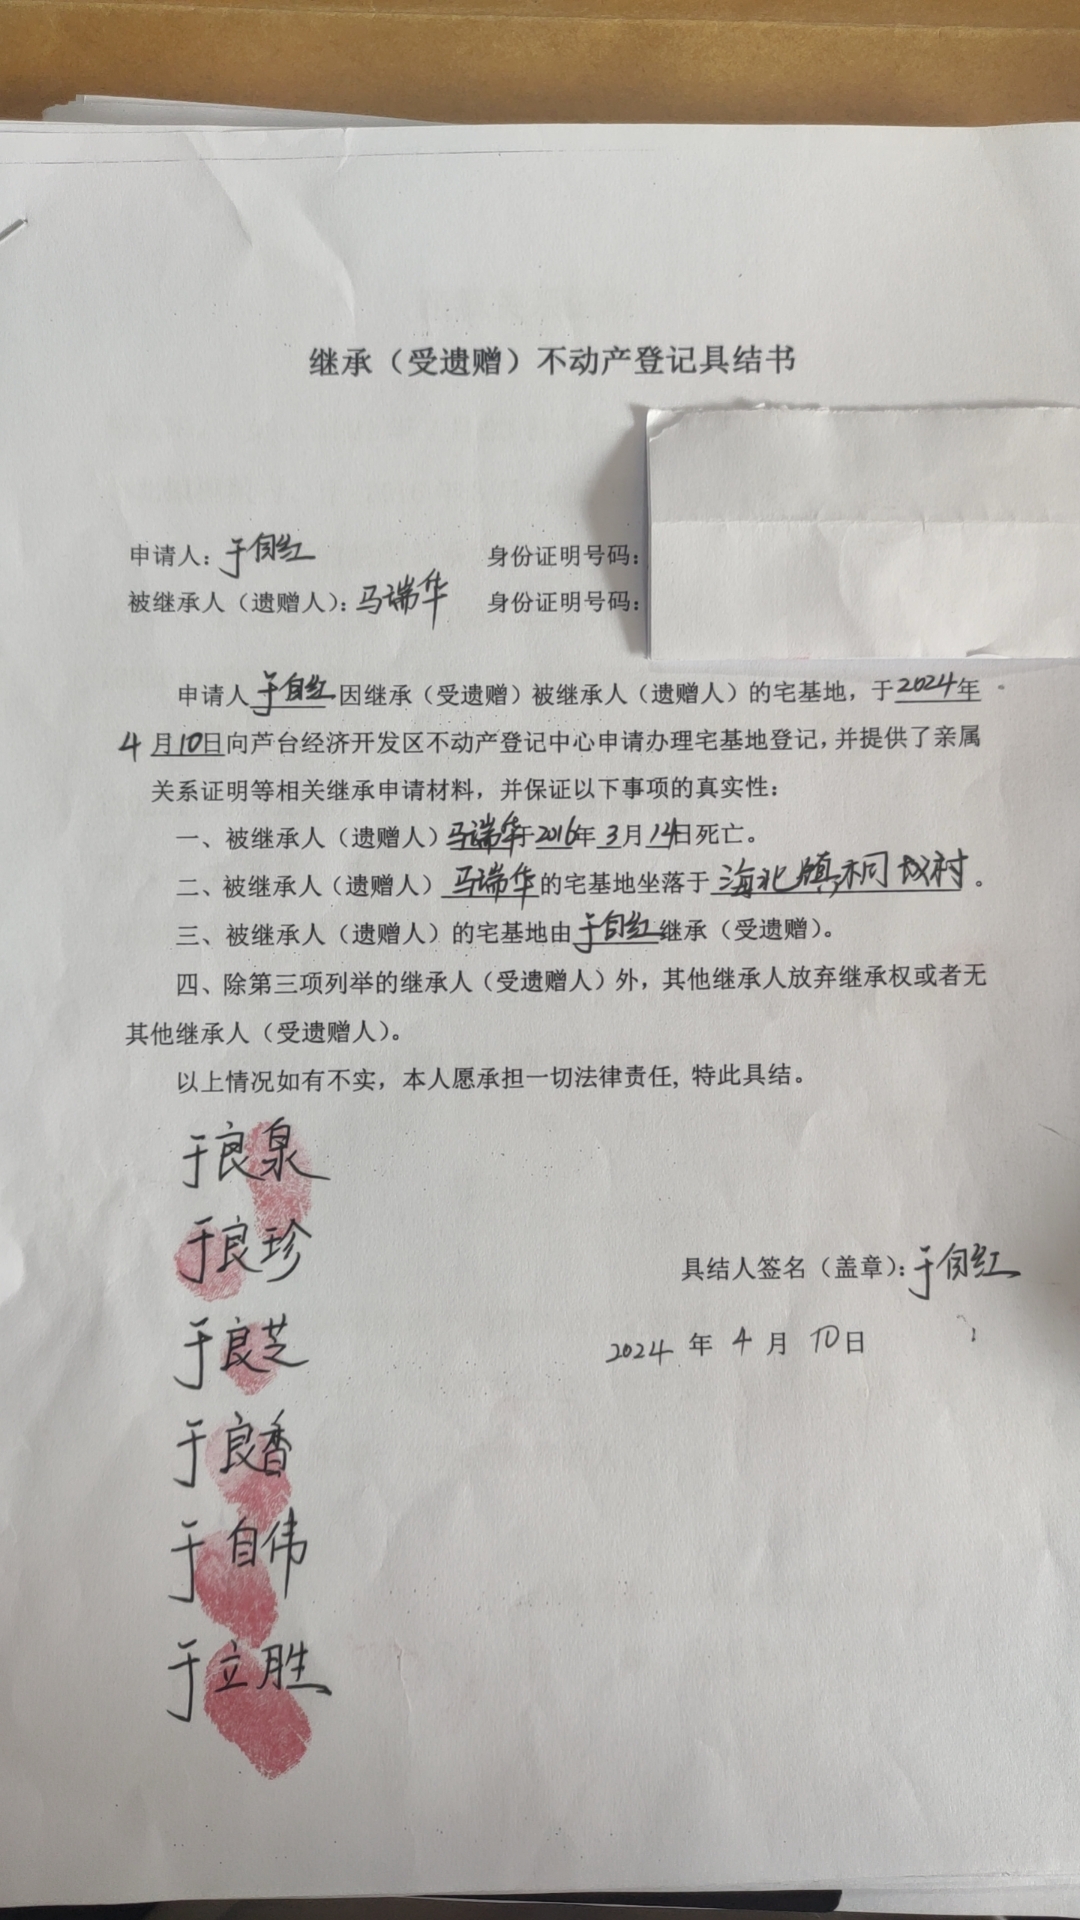 继承（受遗赠）不动产登记具结书
申请人：于自红 身份证明号码：
被继承人（遗赠人）：马瑞华 身份证明号码：
申请人于自红因继承（受遗赠）被继承人（遗赠人）的宅基地，于2024年
4月10日向芦台经济开发区不动产登记中心申请办理宅基地登记，并提供了亲属
关系证明等相关继承申请材料，并保证以下事项的真实性：
一、被继承人（遗赠人）马瑞华于2016年3月14日死亡。
二、被继承人（遗赠人）马瑞华的宅基地坐落于海北镇桐村。
三、被继承人（遗赠人）的宅基地由于自红继承（受遗赠）。
四、除第三项列举的继承人（受遗赠人）外，其他继承人放弃继承权或者无
其他继承人（受遗赠人）。
以上情况如有不实，本人愿承担一切法律责任，特此具结。
于良泉
于良珍
具结人签名（盖章）：于自红
于良芝
2024年4月10日
于良香
于自伟
于立胜